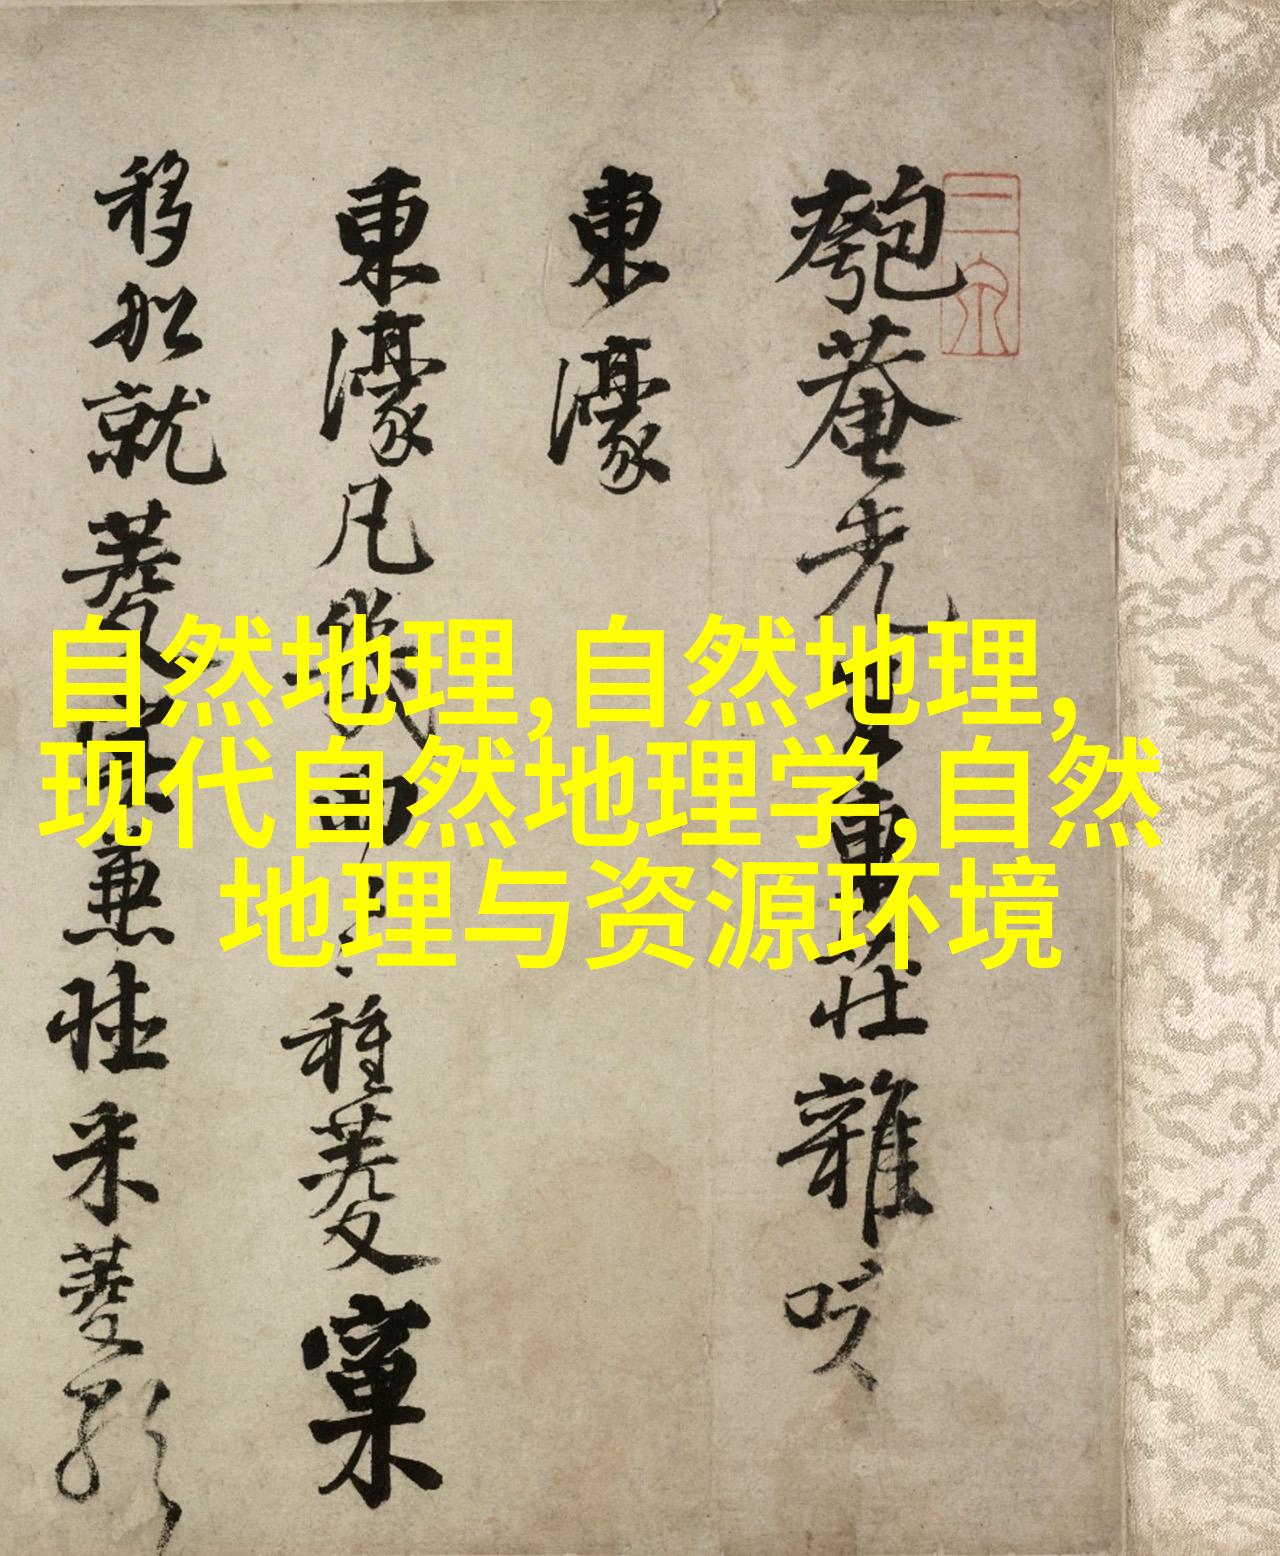 匏菴先生東莊雜咏
東濠
東濠凡幾曲種菱窠
移船就菱兼采菱歌
自然地理,自然地理,
现代自然地理学,自然
地理与资源环境